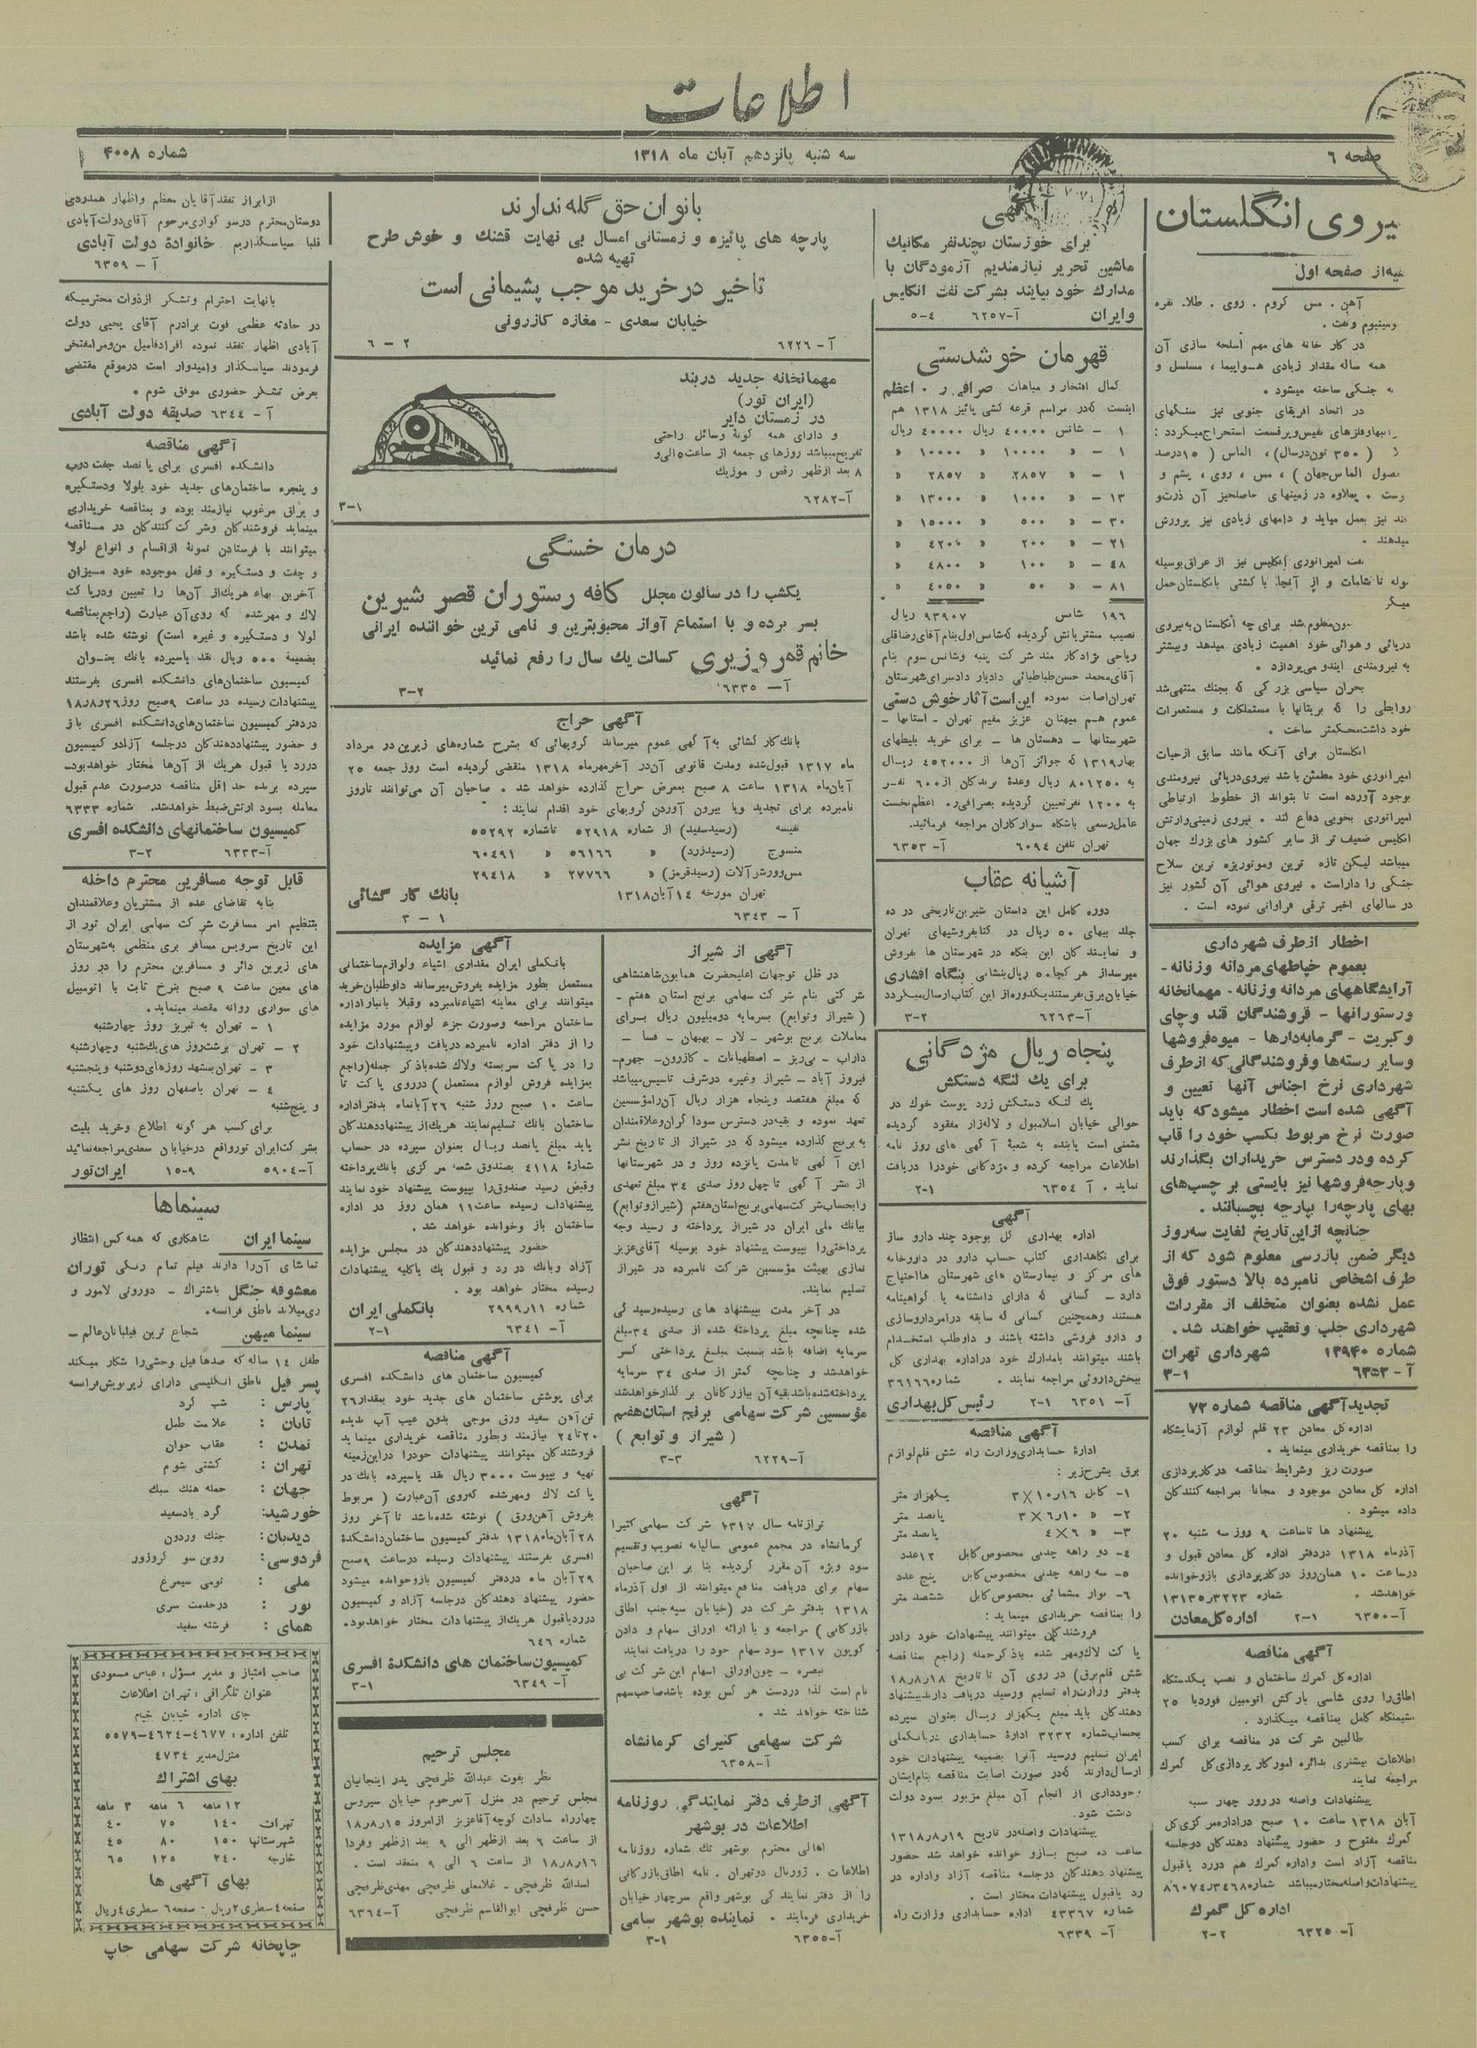 اطلاعات
صفحه ۶
سه شنبه پانزدهم آبان ماه ۱۳۱۸
شماره ۴۰۰۸
یروی انگلستان
یه از صفحه اول
آهن . مس کروم . روی . طلا . نقره
در کار خانه های مهم اسلحه سازی آن
همه ساله مقدار زیادی هواپیما ، مسلسل و
جنگی ساخته میشود .
در اتحاد افریقای جنوبی نیز سنگهای
( ۳۵۰ تن در سال ) ، الماس ( ۱۵ درصد
میدهند .
دریائی و هوائی خود اهمیت زیادی میدهد و بیشتر
به نیرومندی ایندو می پردازد .
بحران سیاسی بزرگی که بجنگ منتهی شد
روابطی را که بریتانیا با مستملکات و مستعمرات
خود داشت محکمتر ساخت .
انگلستان برای آنکه مانند سابق از حیات
امپراتوری خود مطمئن باشد نیروی دریائی نیرومندی
بوجود آورده است تا بتواند از خطوط ارتباطی
امپراتوری بخوبی دفاع کند . نیروی زمینی و ارتش
انگلیس ضعیف تر از سایر کشور های بزرگ جهان
میباشد لیکن تازه ترین و موتوریزه ترین سلاح
جنگی را داراست . نیروی هوائی آن کشور نیز
در سالهای اخیر ترقی فراوانی نموده است .
اخطار از طرف شهرداری
بعموم خیاطهای مردانه و زنانه -
آرایشگاههای مردانه و زنانه - مهمانخانه
و رستورانها - فروشندگان قند و چای
و کبریت - گرمابه‌دارها - میوه فروشها
و سایر رسته‌ها و فروشندگانی که از طرف
شهرداری نرخ اجناس آنها تعیین و
آگهی شده است اخطار میشود که باید
صورت نرخ مربوط بکسب خود را قاب
کرده و در دسترس خریداران بگذارند
و پارچه فروشها نیز بایستی بر چسب‌های
بهای پارچه را بپارچه بچسبانند .
چنانچه از این تاریخ لغایت سه روز
دیگر ضمن بازرسی معلوم شود که از
طرف اشخاص نامبرده بالا دستور فوق
عمل نشده بعنوان متخلف از مقررات
شهرداری جلب و تعقیب خواهند شد .
شماره ۱۳۹۴۰ شهرداری تهران
آ- ۶۳۵۲ ۳-۱
تجدید آگهی مناقصه شماره ۷۲
اداره کل معادن ۲۳ قلم لوازم آزمایشگاه
را بمناقصه خریداری مینماید .
صورت ریز و شرایط مناقصه در کارپردازی
اداره کل معادن موجود و مجانا بمراجعه کنندگان
داده میشود .
پیشنهاد ها تا ساعت ۹ روز سه شنبه ۲۰
آذرماه ۱۳۱۸ در دفتر اداره کل معادن قبول و
در ساعت ۱۰ همان روز در کارپردازی باز و خوانده
خواهد شد .
آ- ۶۳۵۰ ۲-۱ اداره کل معادن
آگهی مناقصه
اداره کل گمرک ساختمان و نصب یکدستگاه
اطاق را روی شاسی بارکش اتومبیل فورد با ۲۵
نشیمنگاه کامل بمناقصه میگذارد .
طالبین شرکت در مناقصه برای کسب
اطلاعات بیشتری بدائره امور کار پردازی کل گمرک
مراجعه نمایند
پیشنهادات واصله در روز چهار شنبه
آبان ۱۳۱۸ ساعت ۱۰ صبح در اداره مرکزی کل
گمرک مفتوح و حضور پیشنهاد دهندگان در جلسه
مناقصه آزاد است و اداره گمرک هم در رد یا قبول
اداره کل گمرک
آ- ۶۳۲۵ ۲-۲
آگهی
برای خوزستان بچند نفر مکانیک
ماشین تحریر نیازمندیم آزمودگان با
مدارک خود بیایند بشرکت نفت انگلیس
و ایران آ- ۶۲۵۷ ۵-۴
قهرمان خوشدستی
کمال افتخار و مباهات صرافی ر . اعظم
اینست که در مراسم قرعه کشی پائیز ۱۳۱۸ هم
۱ - شانس ۴۰۰۰۰ ریال ۴۰۰۰۰ ریال
۱ - » ۱۰۰۰۰ » ۱۰۰۰۰ »
۱ - » ۲۸۵۷ » ۲۸۵۷ »
۱۳ - » ۱۰۰۰ » ۱۳۰۰۰ »
۳۰ - » ۵۰۰ » ۱۵۰۰۰ »
۲۱ - » ۲۰۰ » ۴۲۰۰ »
۴۸ - » ۱۰۰ » ۴۸۰۰ »
۸۱ - » ۵۰ » ۴۰۵۰ »
۱۹۶ شانس ۹۳۹۰۷ ریال
نصیب مشتریانش گردیده که شانس اول بنام آقای رضاقلی
ریاحی نژاد کارمند شرکت پنبه و شانس سوم بنام
آقای محمد حسن طباطبائی دادیار دادسرای شهرستان
تهران اصابت نموده این است آثار خوش دستی
عموم هم میهنان عزیز مقیم تهران - استانها -
شهرستانها - دهستان ها - برای خرید بلیطهای
بهار ۱۳۱۹ که جوائز آن‌ها از ۴۵۲۰۰۰ ریال
به ۸۰۱۲۵۰ ریال وعدهٔ برندگان از ۶۰۰ نفر
به ۱۲۰۰ نفر تعیین گردیده بصرافی ر. اعظم نخست
عامل رسمی باشگاه سوارکاران مراجعه فرمائید.
تهران تلفن ۶۰۹۴ آ- ۶۳۵۳
آشیانه عقاب
دوره کامل این داستان شیرین تاریخی در ده
جلد ببهای ۵۰ ریال در کتابفروشیهای تهران
و نمایندگان این بنگاه در شهرستان ها بفروش
میرسد از هر کجا ۵۰ ریال بنشانی بنگاه افشاری
خیابان برق بفرستند یکدوره از این کتاب ارسال میگردد
آ- ۶۲۶۳ ۳-۲
پنجاه ریال مژدگانی
برای یک لنگه دستکش
یک لنگه دستکش زرد پوست خوک در
حوالی خیابان اسلامبول و لاله‌زار مفقود گردیده
متمنی است یابنده به شعبهٔ آگهی های روز نامه
اطلاعات مراجعه کرده و مژدگانی خود را دریافت
نماید . آ ۶۳۵۴ ۲-۱
آگهی
اداره بهداری کل بوجود چند دارو ساز
برای نگاهداری کتاب حساب دارو در داروخانه
های مرکز و بیمارستان های شهرستان ها احتیاج
دارد - کسانی که دارای دانشنامه یا گواهینامه
هستند و همچنین کسانی که سابقه در امر داروسازی
و دارو فروشی داشته باشند و داوطلب استخدام
باشند میتوانند با مدارک خود در اداره بهداری کل
ببخش داروئی مراجعه نمایند . شماره ۳۶۱۶۶
آ- ۶۳۵۱ ۲-۱ رئیس کل بهداری
آگهی مناقصه
ادارهٔ حسابداری وزارت راه شش قلم لوازم
برق بشرح زیر :
۱- کابل ۱۶ر۱۰ × ۳ یکهزار متر
۲- » ۱۰ر۶ × ۳ پانصد متر
۳- » ۶ × ۴ پانصد متر
۴- دو راهه چدنی مخصوص کابل ۱۲ عدد
۵- سه راهه چدنی مخصوص کابل پنج عدد
۶- نوار مشمائی مخصوص کابل ششصد متر
را بمناقصه خریداری مینماید :
فروشندگان میتوانند پیشنهادات خود را در
پاکت لاک و مهر شده با ذکر جمله (راجع بمناقصه
شش قلم برق) در روی آن تا تاریخ ۱۸ر۸ر۱۸
بدفتر وزارت راه تسلیم و رسید دریافت دارند پیشنهاد
دهندگان باید مبلغ یکهزار ریال بعنوان سپرده
بحساب شماره ۳۲۳۲ ادارهٔ حسابداری در بانک ملی
ایران تسلیم و رسید آنرا بضمیمه پیشنهادات خود
ارسال دارند که در صورت اصابت مناقصه بنام ایشان
و خودداری از انجام آن مبلغ مزبور بسود دولت
پیشنهادات واصله در تاریخ ۱۹ر۸ر۱۳۱۸
ساعت ده صبح باز و خوانده خواهد شد حضور
پیشنهاد دهندگان در جلسه مناقصه آزاد و اداره در
رد یا قبول پیشنهادات مختار است .
شماره ۴۳۳۶۷ اداره حسابداری وزارت راه
آ- ۶۳۳۹
بانوان حق گله ندارند
پارچه های پائیزه و زمستانی امسال بی نهایت قشنگ و خوش طرح
تهیه شده
تاخیر در خرید موجب پشیمانی است
خیابان سعدی - مغازه کازرونی
آ- ۶۲۲۶ ۶-۲
مهمانخانه جدید دربند
(ایران تور)
در زمستان دایر
و دارای همه گونه وسائل راحتی
تفریح میباشد روزهای جمعه از ساعت ۵ الی و
۸ بعد از ظهر رقص و موزیک
آ- ۶۲۸۲ ۳-۱
درمان خستگی
یکشب را در سالون مجلل کافه رستوران قصر شیرین
بسر برده و با استماع آواز محبوبترین و نامی ترین خواننده ایرانی
خانم قمر وزیری کسالت یک سال را رفع نمائید
آ- ۶۳۳۵ ۳-۲
آگهی حراج
بانک کار گشائی به آگهی عموم میرساند گروبهائی که بشرح شماره‌های زیرین در مرداد
ماه ۱۳۱۷ قبول شده و مدت قانونی آن در آخر مهرماه ۱۳۱۸ منقضی گردیده است روز جمعه ۲۵
آبان‌ماه ۱۳۱۸ ساعت ۸ صبح بمعرض حراج گذارده خواهد شد . صاحبان آن می‌توانند تا روز
نامبرده برای تجدید و یا بیرون آوردن گروبهای خود اقدام نمایند :
نفیسه (رسید سفید) از شماره ۵۲۹۱۸ تا شماره ۵۵۲۹۲
منسوج (رسید زرد) » ۵۶۱۶۶ » ۶۰۴۹۱
مس و ورشو آلات (رسید قرمز) » ۲۷۷۶۶ » ۲۹۴۱۸
تهران مورخه ۱۴ آبان ۱۳۱۸ بانک کار گشائی
آ - ۶۳۴۳ ۳ - ۱
آگهی از شیراز
در ظل توجهات اعلیحضرت همایون شاهنشاهی
شرکتی بنام شرکت سهامی برنج استان هفتم -
( شیراز و توابع ) بسرمایه دو میلیون ریال برای
معاملات برنج بوشهر - لار - بهبهان - فسا -
داراب - نی‌ریز - اصطهبانات - کازرون - جهرم -
فیروز آباد - شیراز و غیره در شرف تاسیس میباشد
که مبلغ هفتصد و پنجاه هزار ریال آن را مؤسسین
تعهد نموده و بقیه در دسترس سوداگران و علاقمندان
به برنج گذارده میشود که در شیراز از تاریخ نشر
این آگهی تا مدت پانزده روز و در شهرستانها
از نشر آگهی تا چهل روز صدی ۳۴ مبلغ تعهدی
را بحساب شرکت سهامی برنج استان هفتم (شیراز و توابع)
ببانک ملی ایران در شیراز پرداخته و رسید وجه
پرداختی را بپیوست پیشنهاد خود بوسیله آقای عزیز
نمازی بهیئت مؤسسین شرکت نامبرده در شیراز
تسلیم نمایند.
در آخر مدت پیشنهاد های رسیده رسیدگی
شده چنانچه مبلغ پرداخته شده از صدی ۳۴ مبلغ
سرمایه اضافه باشد بنسبت مبلغ پرداختی کسر
خواهد شد و چنانچه کمتر از صدی ۳۴ سرمایه
پرداخته شده باشد بقیه آن ببازرگانان بر گذار خواهد شد
مؤسسین شرکت سهامی برنج استان هفتم
( شیراز و توابع )
آ- ۶۲۲۹ ۳-۳
آگهی
ترازنامه سال ۱۳۱۷ شرکت سهامی کتیرا
کرمانشاه در مجمع عمومی سالیانه تصویب و تقسیم
سود ویژه آن مقرر گردیده بنا بر این صاحبان
سهام برای دریافت منافع میتوانند از اول آذرماه
۱۳۱۸ بدفتر شرکت در (خیابان سپه جنب اطاق
بازرگانی ) مراجعه و با ارائه اوراق سهام و دادن
کوپون ۱۳۱۷ سود سهام خود را دریافت نمایند
تبصره - چون اوراق اسهام این شرکت بی
نام است لذا در دست هر کس بوده باشد صاحب سهم
شناخته خواهد شد .
شرکت سهامی کتیرای کرمانشاه
آ- ۶۳۵۸
آگهی از طرف دفتر نمایندگی روزنامه
اطلاعات در بوشهر
اهالی محترم بوشهر تک شماره روزنامه
اطلاعات . ژورنال دوتهران . نامه اطاق بازرگانی
را از دفتر نمایندگی بوشهر واقع سر چهار خیابان
خریداری فرمایند . نماینده بوشهر سامی
آ- ۶۳۵۵ ۳-۱
آگهی مزایده
بانک ملی ایران مقداری اشیاء و لوازم ساختمانی
مستعمل بطور مزایده بفروش میرساند داوطلبان خرید
میتوانند برای معاینه اشیاء نامبرده و قبلا بانبار اداره
ساختمان مراجعه و صورت جزء لوازم مورد مزایده
را از دفتر اداره نامبرده دریافت و پیشنهادات خود
را در پاکت سربسته و لاک شده با ذکر جمله (راجع
بمزایده فروش لوازم مستعمل ) در روی پاکت تا
ساعت ۱۰ صبح روز شنبه ۲۶ آبانماه بدفتر اداره
ساختمان بانک تسلیم نمایند هر یک از پیشنهاد دهندگان
باید مبلغ پانصد ریال بعنوان سپرده در حساب
شمارهٔ ۴۱۱۸ بصندوق شعبه مرکزی بانک پرداخته
و قبض رسید صندوق را بپیوست پیشنهاد خود نمایند
پیشنهادات رسیده ساعت ۱۱ همان روز در اداره
ساختمان باز و خوانده خواهد شد .
حضور پیشنهاد دهندگان در مجلس مزایده
آزاد و بانک در رد و قبول یک یا کلیه پیشنهادات
رسیده مختار خواهد بود .
شماره ۱۱ر۲۹۹۹ بانک ملی ایران
آ- ۶۳۴۱ ۲-۱
آگهی مناقصه
کمیسیون ساختمان های دانشکده افسری
برای پوشش ساختمان های جدید خود بمقدار ۲۶
تن آهن سفید ورق موجی بدون عیب آب ندیده
۲۰ تا ۲۴ نیازمند و بطور مناقصه خریداری مینماید
فروشندگان میتوانند پیشنهادات خود را در این زمینه
تهیه و بپیوست ۳۰۰۰ ریال نقد یا سپرده بانک در
پاکت لاک و مهر شده که روی آن عبارت ( مربوط
بفروش آهن ورق ) نوشته شده باشد تا آخر روز
۲۸ آبان ماه ۱۳۱۸ بدفتر کمیسیون ساختمان دانشکدهٔ
افسری بفرستند پیشنهادات رسیده در ساعت ۹ صبح
۲۹ آبان ماه در دفتر کمیسیون باز و خوانده میشود
حضور پیشنهاد دهندگان در جلسه آزاد و کمیسیون
در رد یا قبول هر یک از پیشنهادات مختار خواهد بود.
شماره ۶۴۶
کمیسیون ساختمان های دانشکدهٔ افسری
آ- ۶۳۴۹ ۳-۱
مجلس ترحیم
نظر بفوت عبدالله ظرفچی پدر اینجانبان
مجلس ترحیم در منزل آنمرحوم خیابان سیروس
چهارراه سادات کوچه آقا عزیز از امروز ۱۵ر۸ر۱۸
از ساعت ۶ بعد از ظهر الی ۹ بعد از ظهر و فردا
۱۶ر۸ر۱۸ از ساعت ۶ الی ۹ منعقد است .
اسدالله ظرفچی - غلامعلی ظرفچی مهدی ظرفچی
حسن ظرفچی ابوالقاسم ظرفچی آ- ۶۳۶۴
از ابراز تفقد آقایان معظم و اظهار همدردی
دوستان محترم در سوگواری مرحوم آقای دولت آبادی
قلبا سپاسگذاریم . خانوادهٔ دولت آبادی
آ- ۶۳۵۹
با نهایت احترام و تشکر از ذوات محترمیکه
در حادثه عظمی فوت برادرم آقای یحیی دولت
آبادی اظهار تفقد نموده افراد فامیل من و مرا مفتخر
فرمودند سپاسگذار و امیدوار است در موقع مقتضی
بعرض تشکر حضوری موفق شوم .
آ- ۶۳۴۴ صدیقه دولت آبادی
آگهی مناقصه
دانشکده افسری برای پانصد جفت درب
و پنجره ساختمان‌های جدید خود بلولا و دستگیره
و یراق مرغوب نیازمند بوده و بمناقصه خریداری
مینماید فروشندگان و شرکت کنندگان در مناقصه
میتوانند با فرستادن نمونهٔ از اقسام و انواع لولا
و چفت و دستگیره و قفل موجوده خود میزان
آخرین بهاء هر یک از آن‌ها را تعیین و در پاکت
لاک و مهر شده که روی آن عبارت (راجع بمناقصه
لولا و دستگیره و غیره است) نوشته شده باشد
بضمیمهٔ ۵۰۰ ریال نقد یا سپرده بانک بعنوان
کمیسیون ساختمان‌های دانشکده افسری بفرستند
پیشنهادات رسیده در ساعت ۹ صبح روز ۲۶ر۸ر۱۸
در دفتر کمیسیون ساختمان‌های دانشکده افسری باز
و حضور پیشنهاد دهندگان در جلسه آزاد و کمیسیون
در رد یا قبول هر یک از آن‌ها مختار خواهد بود -
سپرده برنده حداقل مناقصه در صورت عدم قبول
معامله بسود ارتش ضبط خواهد شد. شماره ۶۳۳۳
کمیسیون ساختمانهای دانشکده افسری
آ- ۶۳۳۳ ۳-۲
قابل توجه مسافرین محترم داخله
بنا به تقاضای عده از مشتریان و علاقمندان
بتنظیم امر مسافرت شرکت سهامی ایران تور از
این تاریخ سرویس مسافر بری منظمی به شهرستان
های زیرین دائر و مسافرین محترم را در روز
های معین ساعت ۹ صبح بنرخ ثابت با اتومبیل
های سواری روانه مقصد مینماید.
۱ - تهران به تبریز روز چهارشنبه
۲ - تهران برشت روز های یکشنبه و چهارشنبه
۳ - تهران بمشهد روزهای دوشنبه و پنجشنبه
۴ - تهران باصفهان روز های یکشنبه
و پنج‌شنبه
برای کسب هر گونه اطلاع و خرید بلیت
بشرکت ایران تور واقع در خیابان سعدی مراجعه نمائید
آ- ۵۹۰۴ ۱۵-۹ ایران تور
سینماها
سینما ایران شاهکاری که همه کس انتظار
تماشای آن را دارند فیلم تمام رنگی توران
معشوقه جنگل باشتراک - دوروتی لامور و
ری میلاند ناطق فرانسه.
سینما میهن شجاع ترین فیلبانان عالم -
طفل ۱۴ ساله که صدها فیل وحشی را شکار میکند
پسر فیل ناطق انگلیسی دارای زیرنویش فرانسه
پارس : شب گرد
تابان : علامت طبل
تمدن : عقاب جوان
تهران : کشتی شوم
جهان : حمله هنگ سبک
خورشید: گرد بادسعید
دیدبان : جنگ وردون
فردوسی : روبن سو کروزور
ملی : تومی سیمرغ
نور : در خدمت سری
همای : فرشته سفید
صاحب امتیاز و مدیر مسؤل : عباس مسعودی
عنوان تلگرافی : تهران اطلاعات
جای اداره خیابان خیام
تلفن اداره : ۴۶۷۷-۴۶۲۴-۵۵۷۹
منزل مدیر ۴۷۳۴
بهای اشتراک
۱۲ ماهه ۶ ماهه ۳ ماهه
تهران ۱۴۰ ۷۵ ۴۰
شهرستانها ۱۵۰ ۸۰ ۴۵
خارجه ۲۴۰ ۱۲۵ ۶۵
بهای آگهی ها
صفحه ۴ سطری ۲ ریال - صفحه ۶ سطری ۴ ریال
چاپخانه شرکت سهامی چاپ